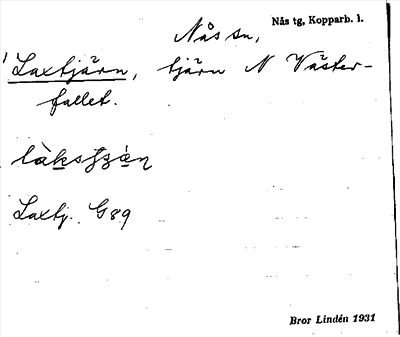 Nås tg, Kopparb. l.
Nås sn,
Laxtjärn, tjärn N Väster-
fallet.
Laxtj. G89
Bror Lindén 1931